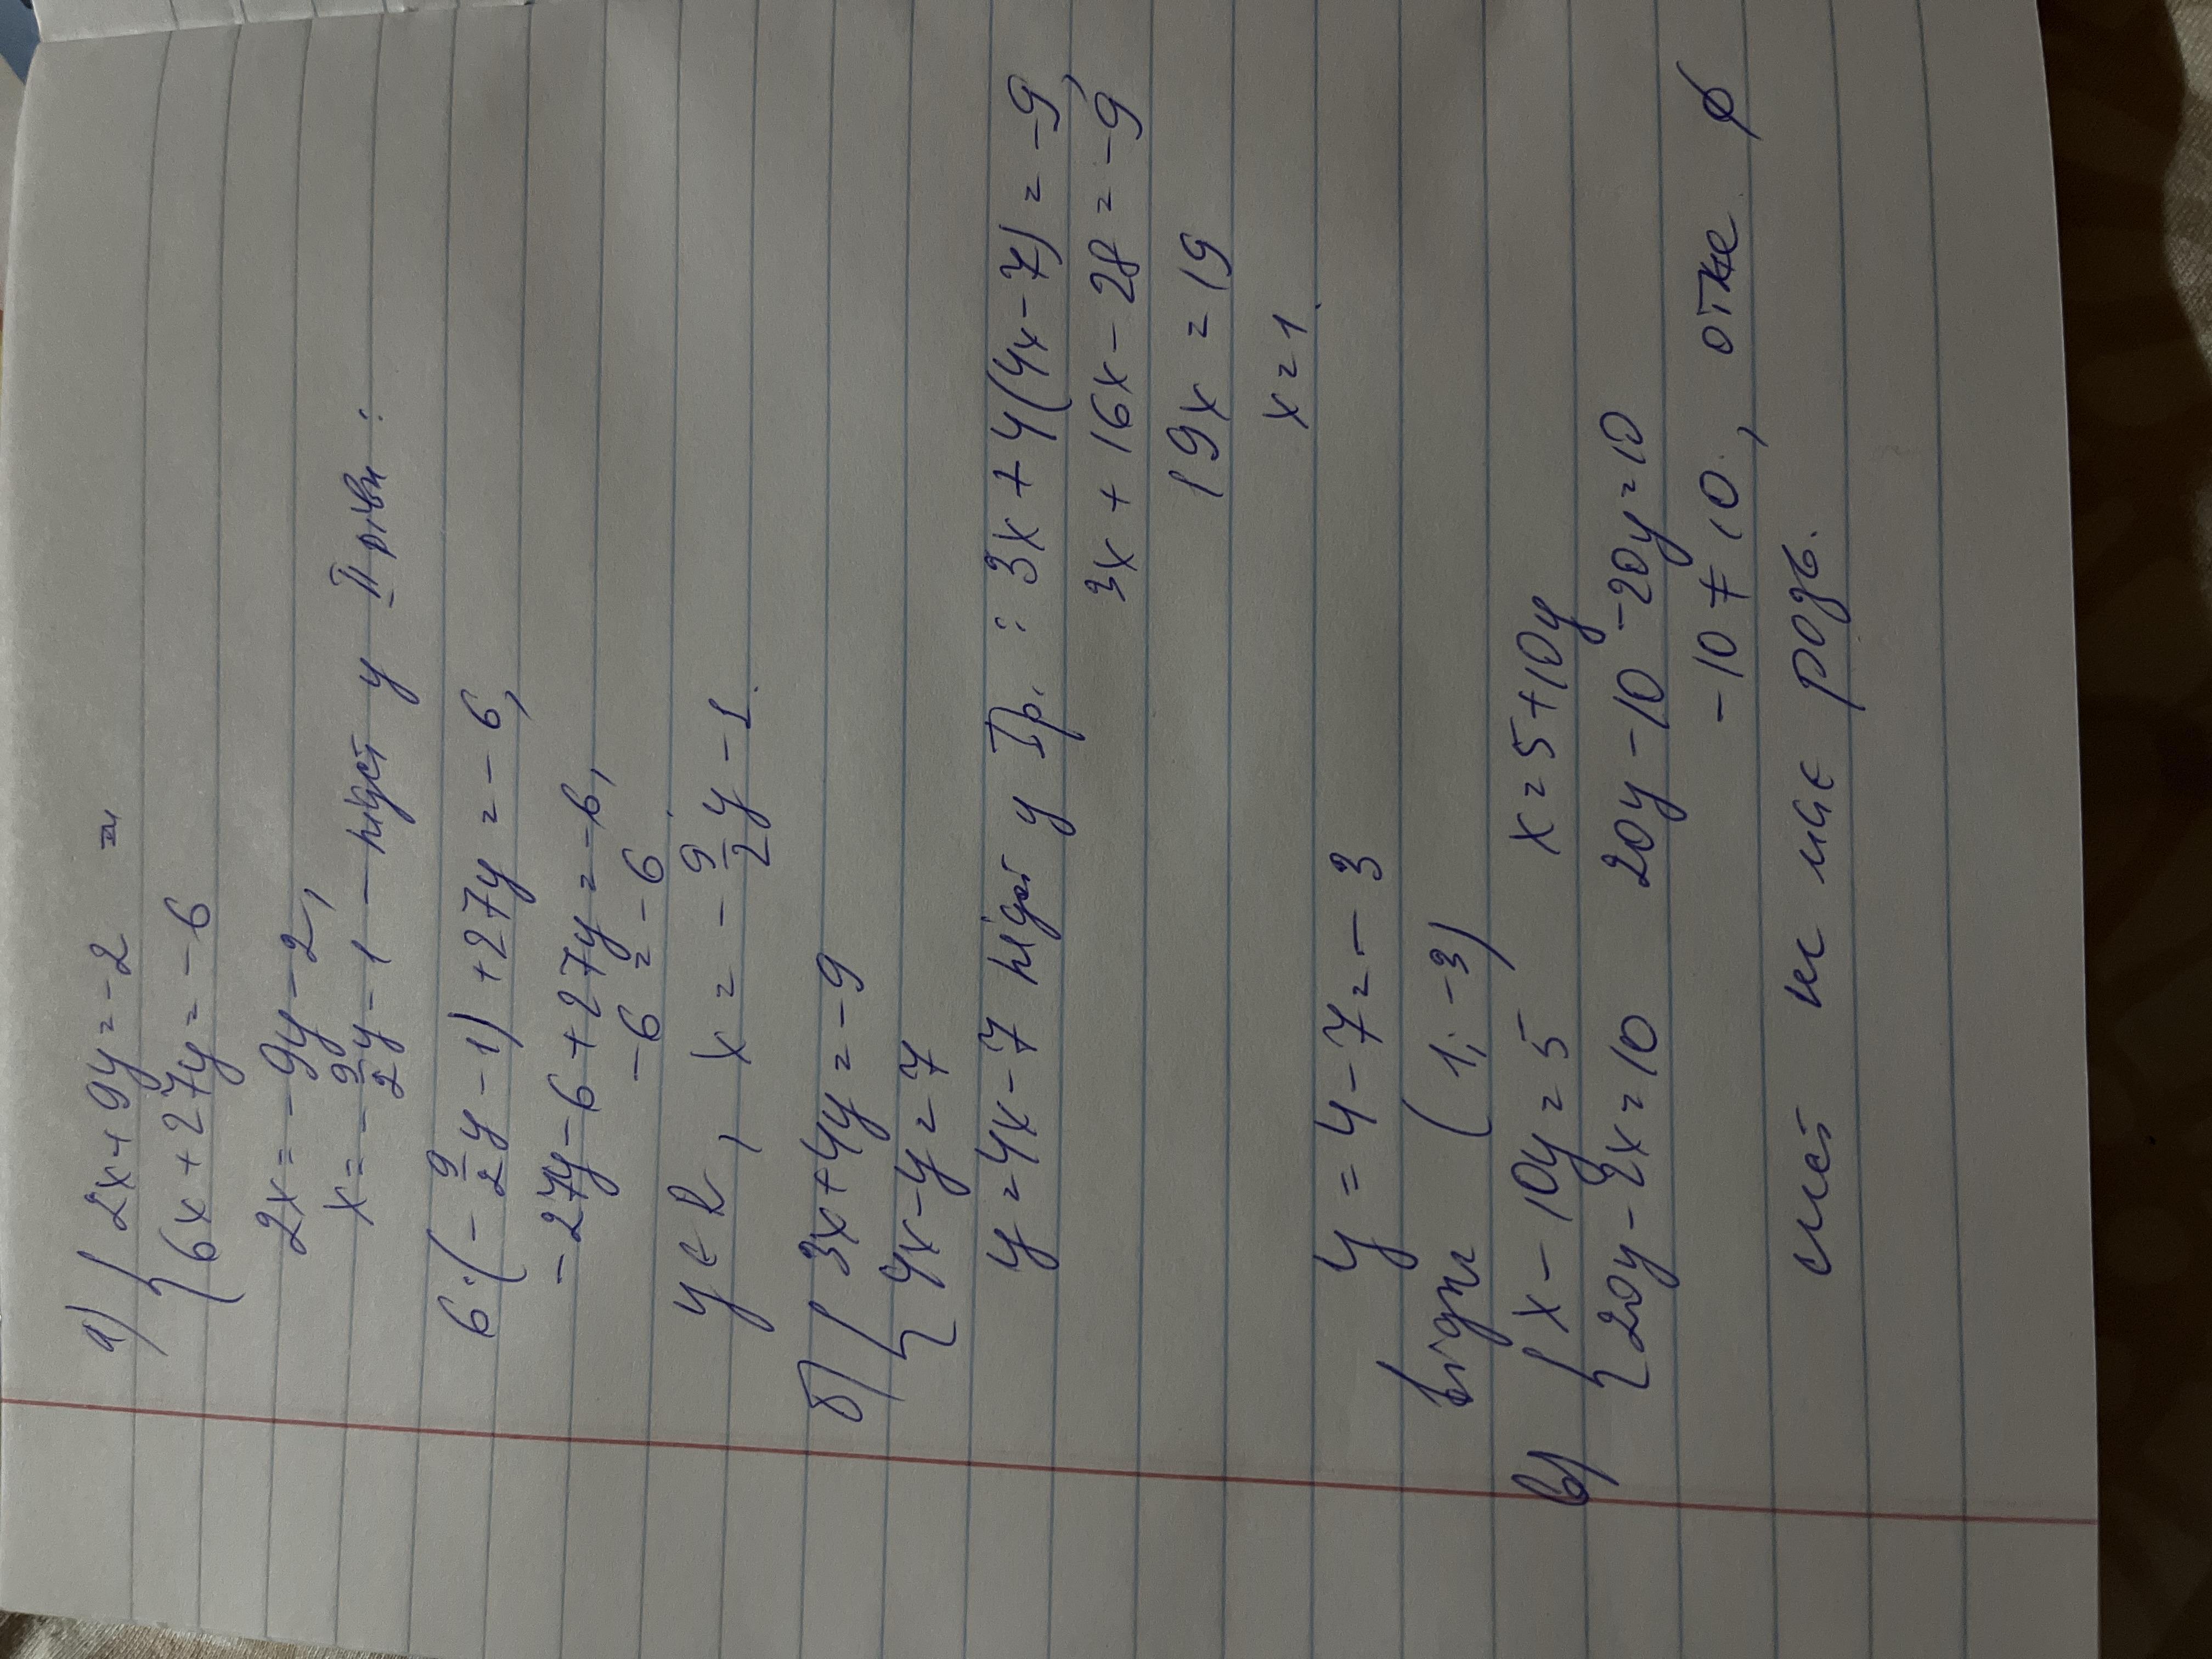 а) { 2x + 9y = -2 =
6x + 27y = -6
2x = -9y - 2,
x = -9/2 y - 1 - підст у II рівн :
6·(-9/2 y - 1) + 27y = -6,
-27y - 6 + 27y = -6,
-6 = -6
y ∈ R, x = -9/2 y - 1.
б) { 3x + 4y = -9
4x - y = 7
y = 4x - 7 підст у I р. : 3x + 4(4x - 7) = -9,
3x + 16x - 28 = -9
19x = 19
x = 1.
y = 4 - 7 = -3
(1; -3)
в) { x - 10y = 5 x = 5 + 10y
20y - 2x = 10 20y - 10 - 20y = 10
-10 ≠ 10, отже ∅
сист не має розв.